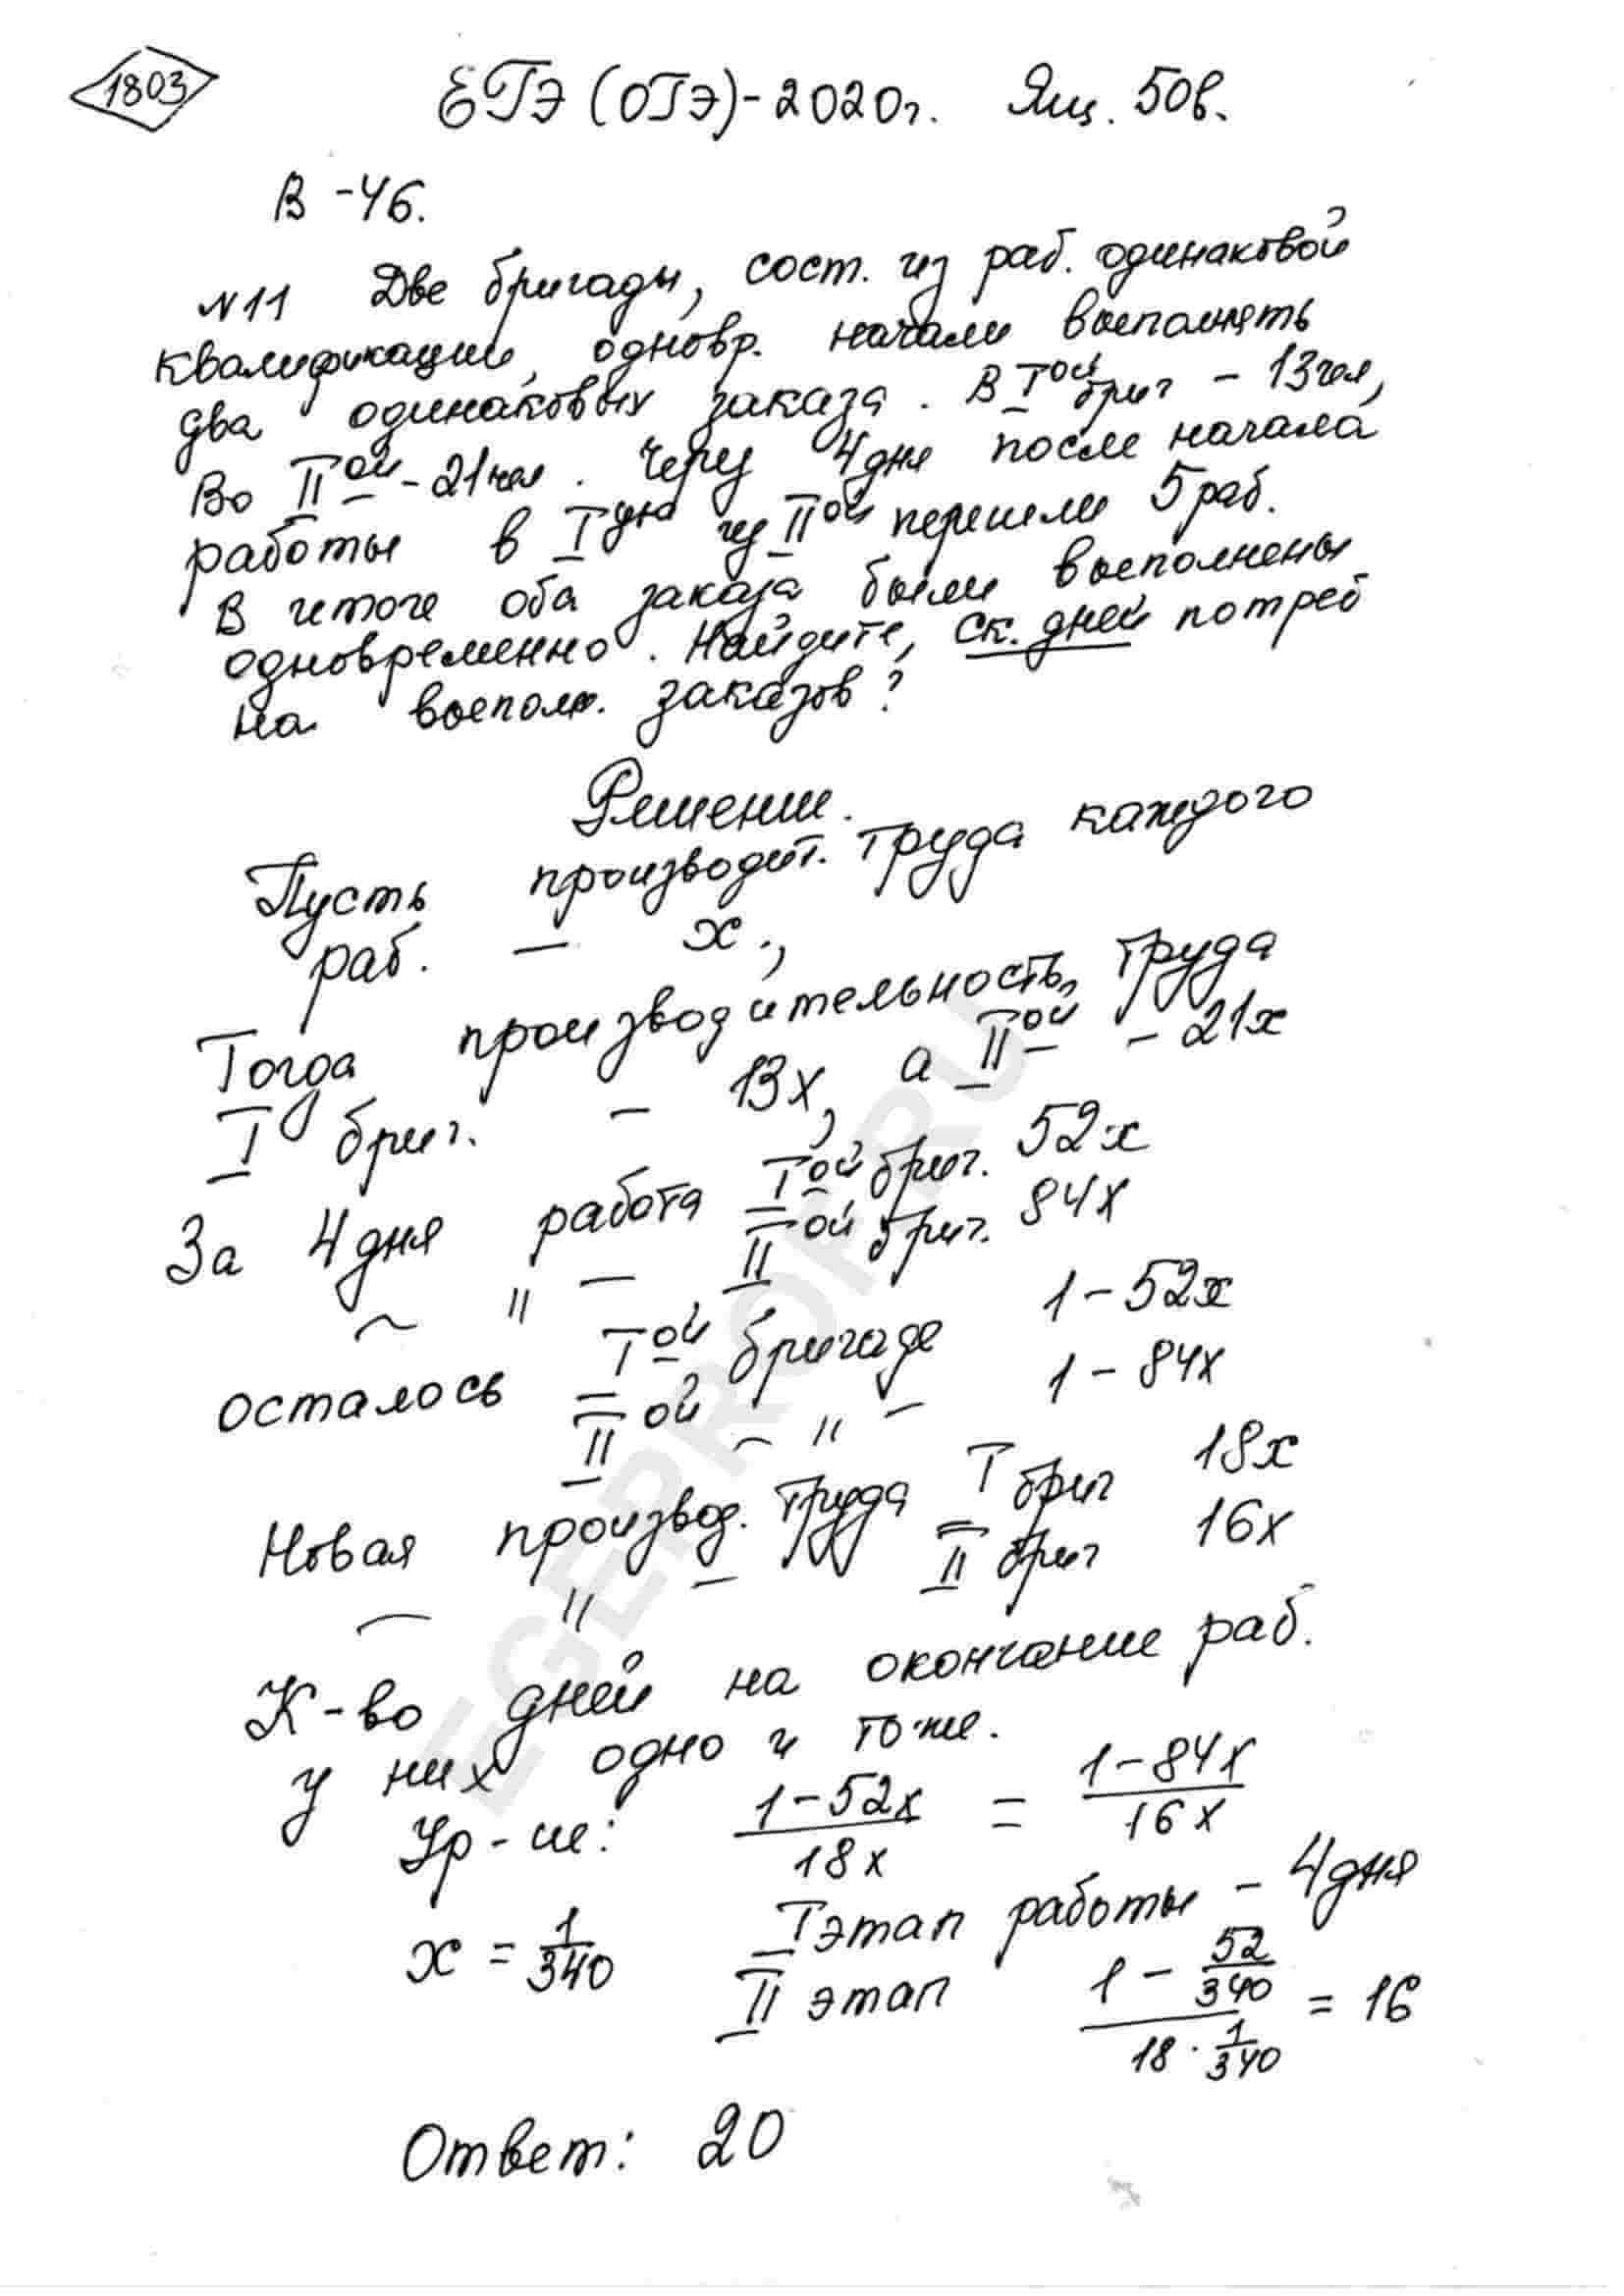 1803
ЕГЭ (ОГЭ)-2020г. Ящ. 50в.
В-46.
№11 Две бригады, сост. из раб. одинаковой
квалификации, одновр. начали выполнять
два одинаковых заказа. В I ой бриг - 13чел,
Во II ой - 21чел. Через 4дня после начала
работы в I ую из II ой перешли 5раб.
В итоге оба заказа были выполнены
одновременно. Найдите, ск. дней потреб
на выполн. заказов?
Решение.
Пусть производит. труда каждого
раб. — х.,
Тогда производительность труда
I бриг. – 13х, а II ой – 21х
За 4дня работа I ой бриг. 52х
~ " — II ой бриг. 84х
осталось I ой бригаде 1-52х
II ой ~ " – 1-84х
Новая производ. труда I бриг 18х
— " — II бриг 16х
К-во дней на окончание раб.
у них одно и то же.
Ур-ие: (1-52х)/(18х) = (1-84х)/(16х)
х = 1/340 I этап работы - 4дня
II этап (1 - 52/340)/(18 · 1/340) = 16
Ответ: 20
EGEPROF.RU